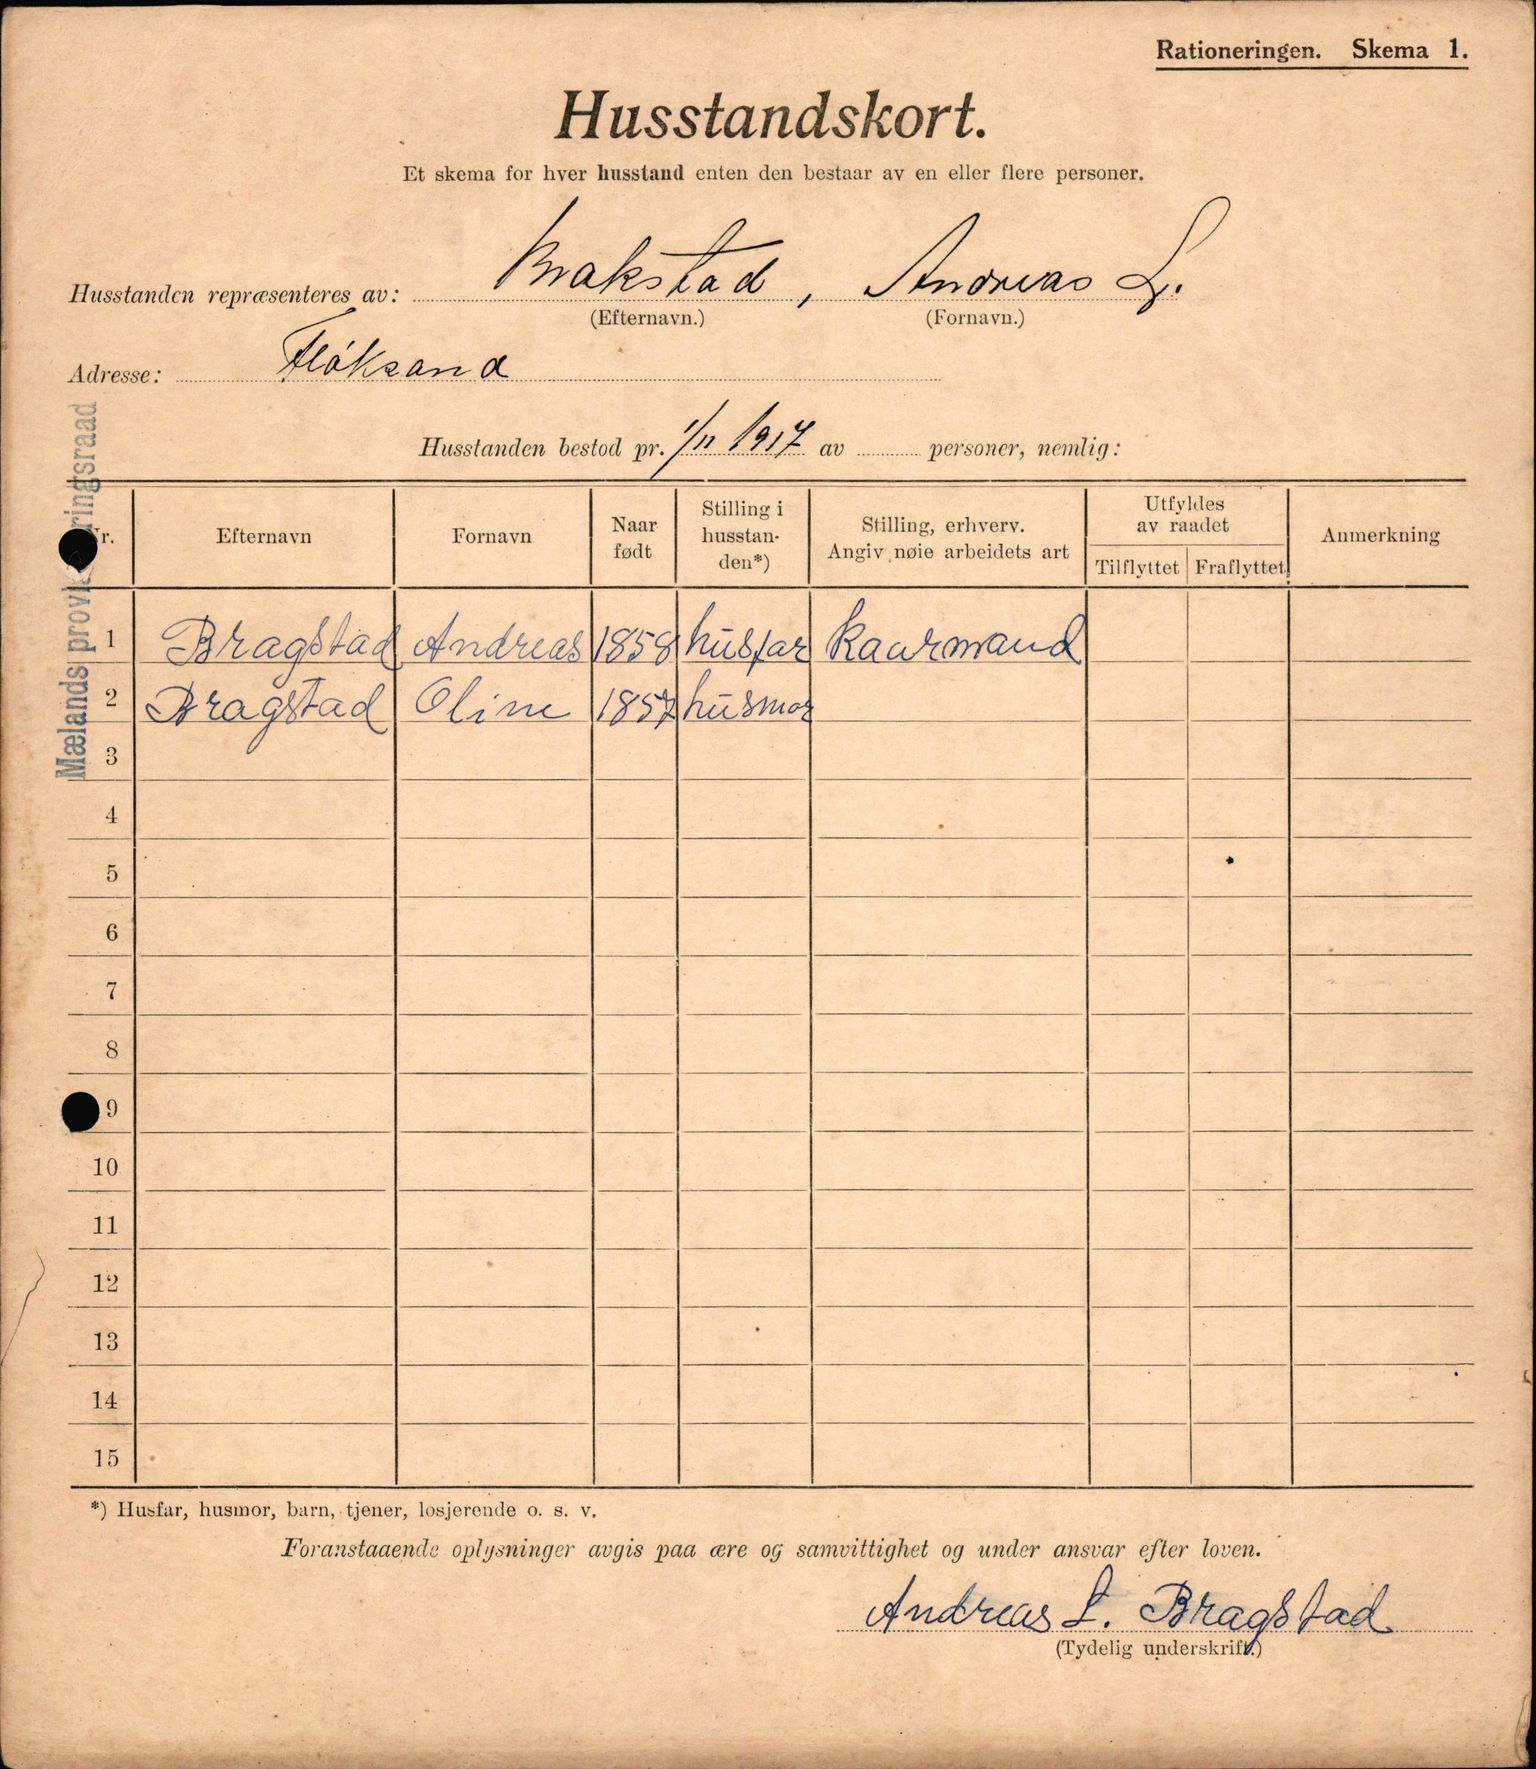 Rationeringen. Skema 1.
Husstandskort.
Et skema for hver husstand enten den bestaar av en eller flere personer.
Husstanden repræsenteres av: Brakstad, Andreas L.
(Efternavn.) (Fornavn.)
Adresse: Fløksand
Husstanden bestod pr. 1/11 1917 av personer, nemlig:
Mælands provianteringsraad
Nr. Efternavn Fornavn Naar født Stilling i husstanden*) Stilling, erhverv. Angiv nøie arbeidets art Utfyldes av raadet Tilflyttet Fraflyttet Anmerkning
1 Bragstad Andreas 1858 husfar kaarmand
2 Bragstad Oline 1857 husmor
3
4
5
6
7
8
9
10
11
12
13
14
15
*) Husfar, husmor, barn, tjener, losjerende o. s. v.
Foranstaaende oplysninger avgis paa ære og samvittighet og under ansvar efter loven.
Andreas L. Bragstad
(Tydelig underskrift.)